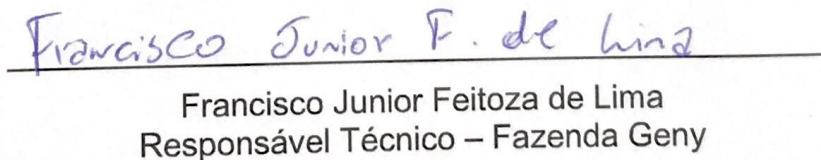 Francisco Junior F. de Lima
Francisco Junior Feitoza de Lima
Responsável Técnico – Fazenda Geny